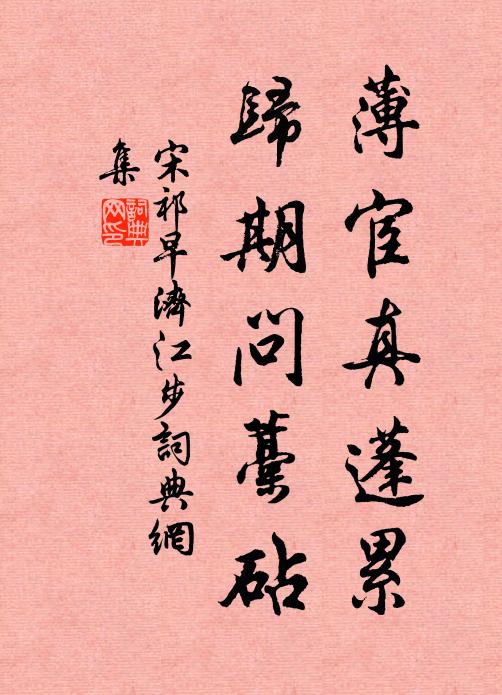 薄宦真蓬累
歸期問藁砧
宋祁早濟江步詞典網
集
詞典
网印